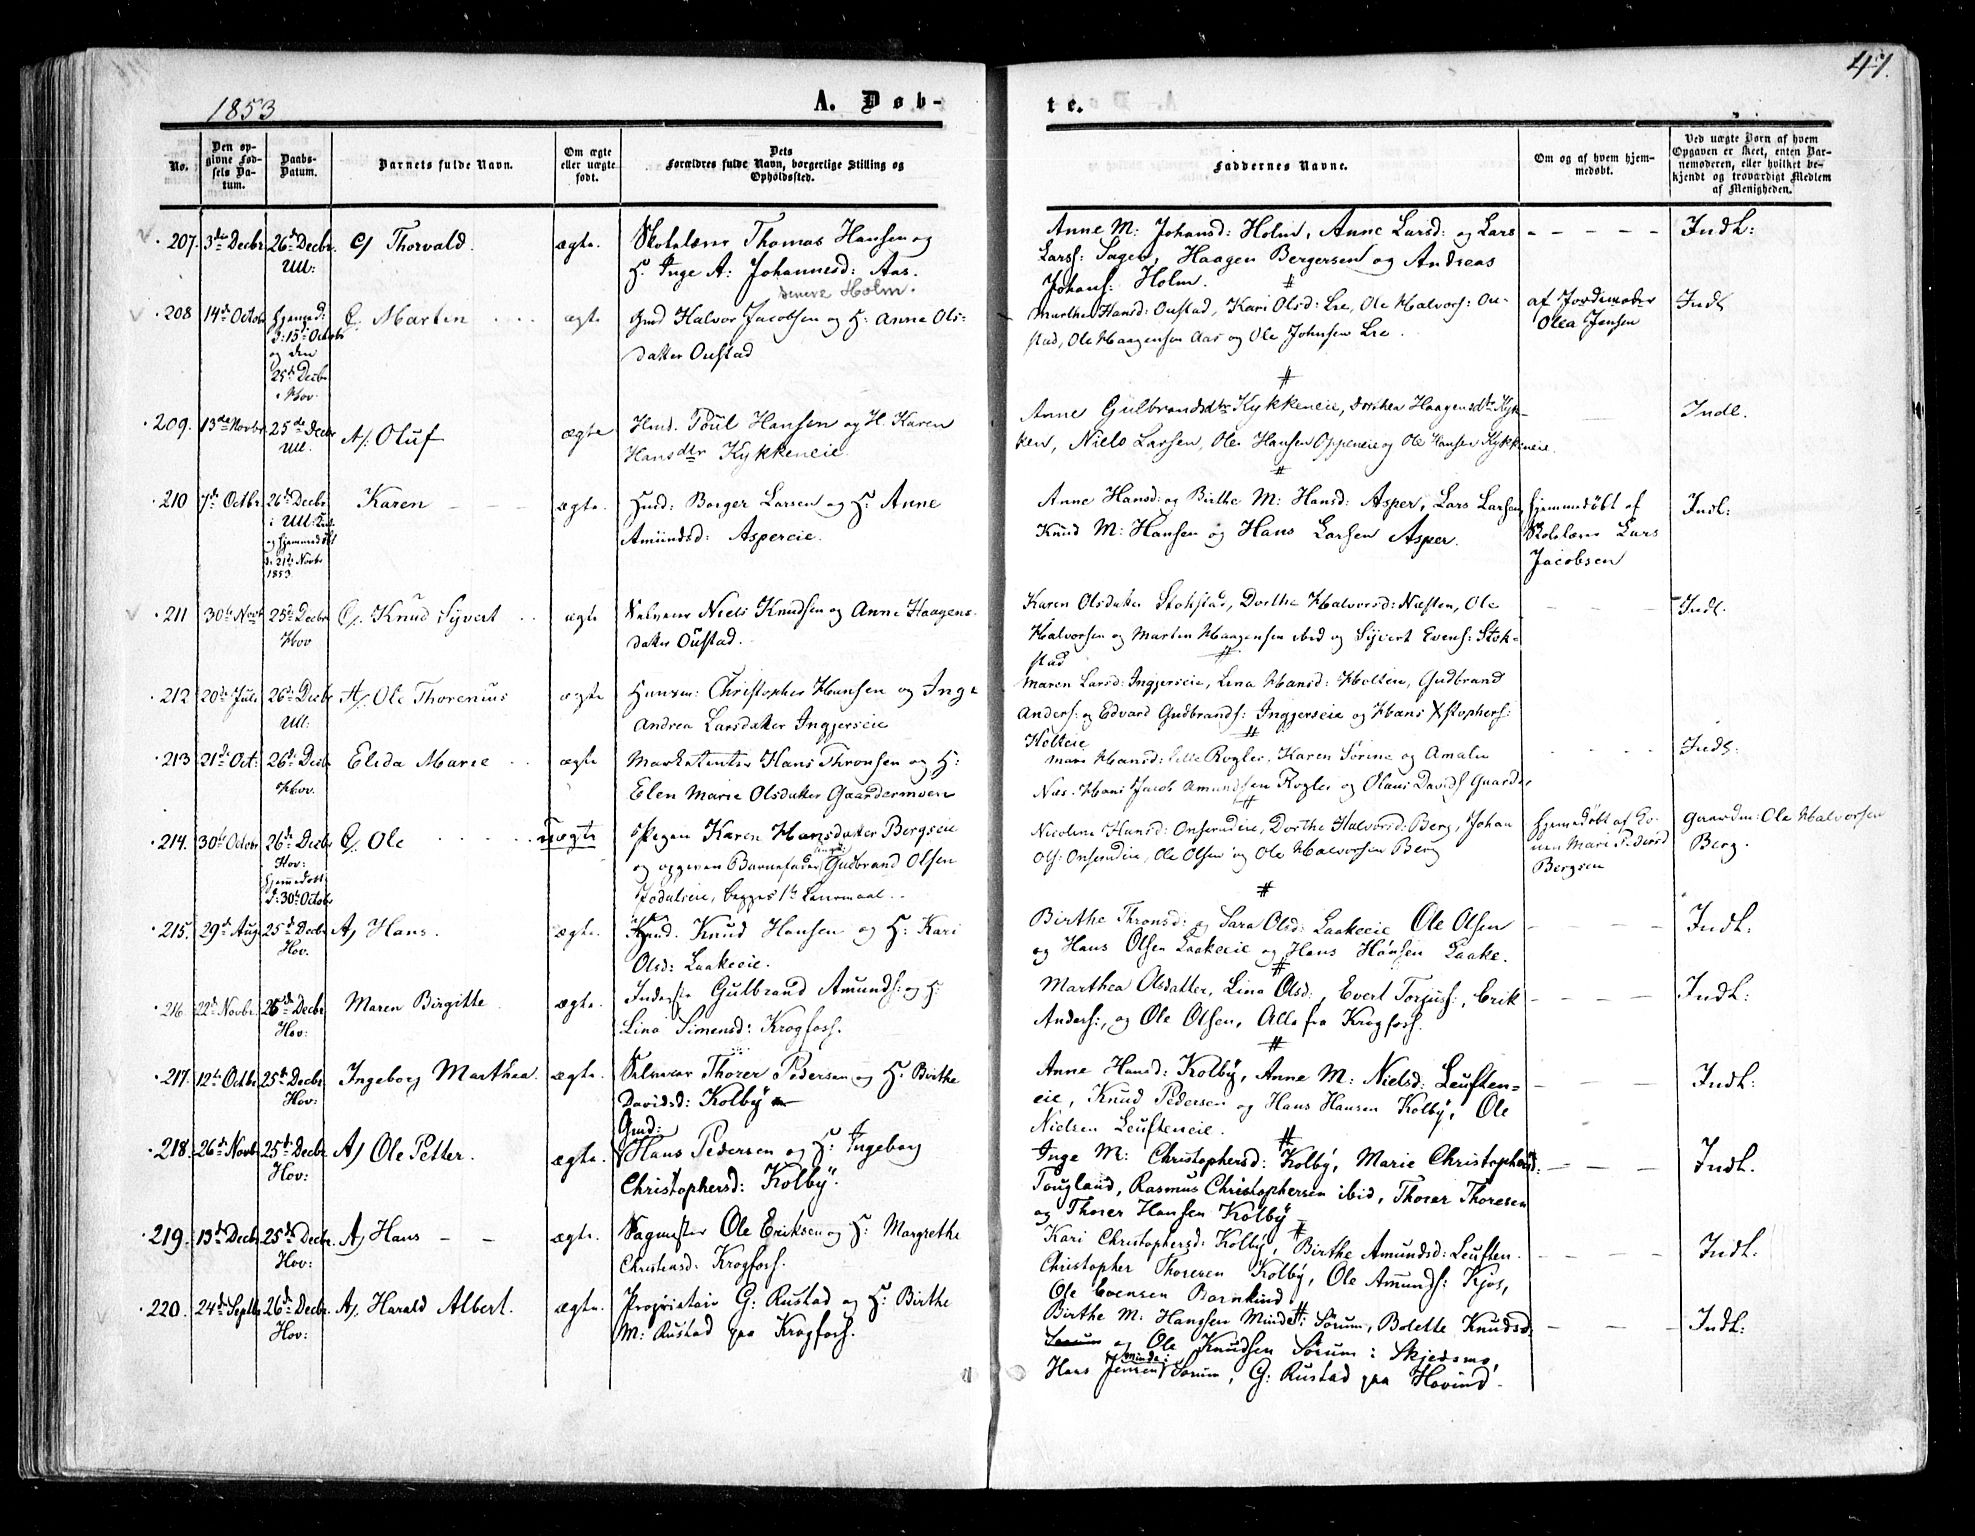 47.
1853
A. Døb-
te.
No.
Den op-
givne Fød-
sels Da-
tum.
Daabs-
Datum.
Barnets fulde Navn.
Om ægte
eller uægte
født.
Dets
Forældres fulde Navn, borgerlige Stilling og
Opholdssted.
Faddernes Navne.
Om og af hvem hjem-
medøbt.
Ved uægte Børn af hvem
Opgaven er skeet, enten Bar-
nemoderen, eller hvilket be-
kjendt og troværdigt Medlem
af Menigheden.
207. 3de Decbr. 26de Decbr. Thorvald. ægte. Skolelærer Thomas Hansen og
Ull:
H. Inge A: Johannesd: Aas.
senere Holm.
Anne M: Johansd: Holm, Anne Larsd: og Lars
Larss: Sagen, Haagen Bergersen og Andreas
Johans: Holm.
Indl:
208 14de Octobr Hjemmed: Martin ægte Gmd Halvor Jacobsen og H: Anne Ols-
d: 15de Octobr
og den
25de Decbr
i Hov.
datter Oustad
Marthe Hansd: Oustad, Kari Olsd: Lie, Ole Halvors: Ou-
stad, Ole Haagensen Aas og Ole Johnsen Lie.
af Jordemoder
Olea Jensen
Indl
209. 13de Novbr. 25de Decbr A/. Oluf ægte Hmd. Poul Hansen og H. Karen
Ull.
Hansdtr Kykkeneie.
Anne Gulbrandsdtr Kykkeneie, Dorthea Haagensdtr Kyk-
ken, Niels Larsen, Ole Hansen Oppeneie og Ole Hansen Kykkeneie.
Indl.
210 7de Octbr. 26de Decbr Karen ægte. Hmd: Borger Larsen og H: Anne
i Ull:
og hjemmedøbt
d: 21de Novbr
1853
Amundsd: Aspereie.
Anne Hansd: og Birthe M: Hansd: Asper, Lars Larsen
Knud M: Hansen og Hans Larsen Asper.
Hjemmedøbt af
Skolelærer Lars
Jacobsen
Indl:
211 30te Novbr 25de Decbr Knud Syvert ægte Selveier Niels Knudsen og Anne Haagens-
Hov
datter Oustad.
Karen Olsdatter Stokstad, Dorthe Halvorsd: Næsten, Ole
Halvorsen og Martin Haagensen ibid og Syvert Evens: Stok-
stad
Indl.
212 20de Juli 26de Decbr A/. Ole Thorenius ægte Husm: Christopher Hansen og Inge
Ull:
Andrea Larsdatter Ingjerseie
Maren Larsd: Ingjerseie, Lina Hansd: Holten, Gudbrand
Anders: og Edvard Gudbrands: Ingjerseie og Hans Xstophers:
Holteie
213 21de Oct: 26de Decbr Elida Marie ægte Marketenter Hans Thronsen og H:
Hov.
Elen Marie Olsdatter Gaardermoen
Mari Hansd: lille Rogler, Karen Sørine og Amalie
Næs. Hans Jacob Amundsen Rogler og Olaus Davids: Gaarder
Indl:
214. 30te Octobr 26de Decbr Ole Uægte Pigen Karen Hansdatter Bergseie
Hov:
hjemmedøbt
d: 30te Octobr
og opgiven Barnefader Gudbrand Olsen
Jødalseie, begges 1ste Leiermaal.
Nicoline Hansd: Onsrudeie, Dorthe Halvorsd: Berg, Johan
Ols: Onsrudeie, Ole Olsen og Ole Halvorsen Berg
Hjemmedøbt af
Mari Pedersd
Bergseie
Gaardm: Ole Halvorsen
Berg.
215. 29de Aug 25de Decbr A/ Hans. ægte. Hmd. Knud Hansen og H: Kari
Hov.
Olsd: Laakeeie.
Birthe Thronsd: og Sara Olsd: Laakeeie Ole Olsen
og Hans Olsen Laakeeie og Hans Hansen Laake.
Indl:
216. 22de Novbr. 25de Decbr. Maren Birgitte ægte. Inderste Gulbrand Amunds: og H:
Hov:
Lina Simensd: Krogfoss.
Marthea Olsdatter, Lina Olsd:, Evert Torjus:, Erik
Anders:, og Ole Olsen, Alle fra Krogfoss.
Indl:
217. 12te Octbr 25de Decbr. Ingeborg Marthea. ægte. Selveier Thorer Pedersen og H: Birthe
Hov:
Davidsd: Kolby
Anne Hansd: Kolby, Anne M: Nielsd: Leuften-
eie, Knud Pedersen og Hans Hansen Kolby, Ole
Nielsen Leufteneie.
Indl:
218. 26de Novbr 25de Decbr. A/ Ole Petter. ægte. Gmd: Hans Pedersen og H: Ingeborg
Hov:
Christophersd: Kolby.
Inge M: Christophersd: Kolby, Marie Christophersd:
Tougland, Rasmus Christophersen ibid, Thorer Thoresen
og Thorer Hansen Kolby
Indl.
219. 13de Decbr 25de Decbr. A/ Hans ægte. Sagmester Ole Eriksen og H: Margrethe
Hov:
Christensd: Krogfoss.
Kari Christophersd: Kolby, Birthe Amundsd: Leuften.
Christopher Thoresen Kolby, Ole Amunds: Kjos,
Ole Evensen Barnkind.
Indl:
220. 24de Septbr 26de Decbr. A/. Harald Albert. ægte. Proprietair G: Rustad og H: Birthe
Hov:
M: Rustad paa Krogfoss.
Birthe M: Hanssen Minde: Sørum, Bolette Knudsd:
Sørum og Ole Knudsen Sørum i Skjedsmo,
Hans Jensen Minde: Sørum, G: Rustad paa Hovind.
Indl: